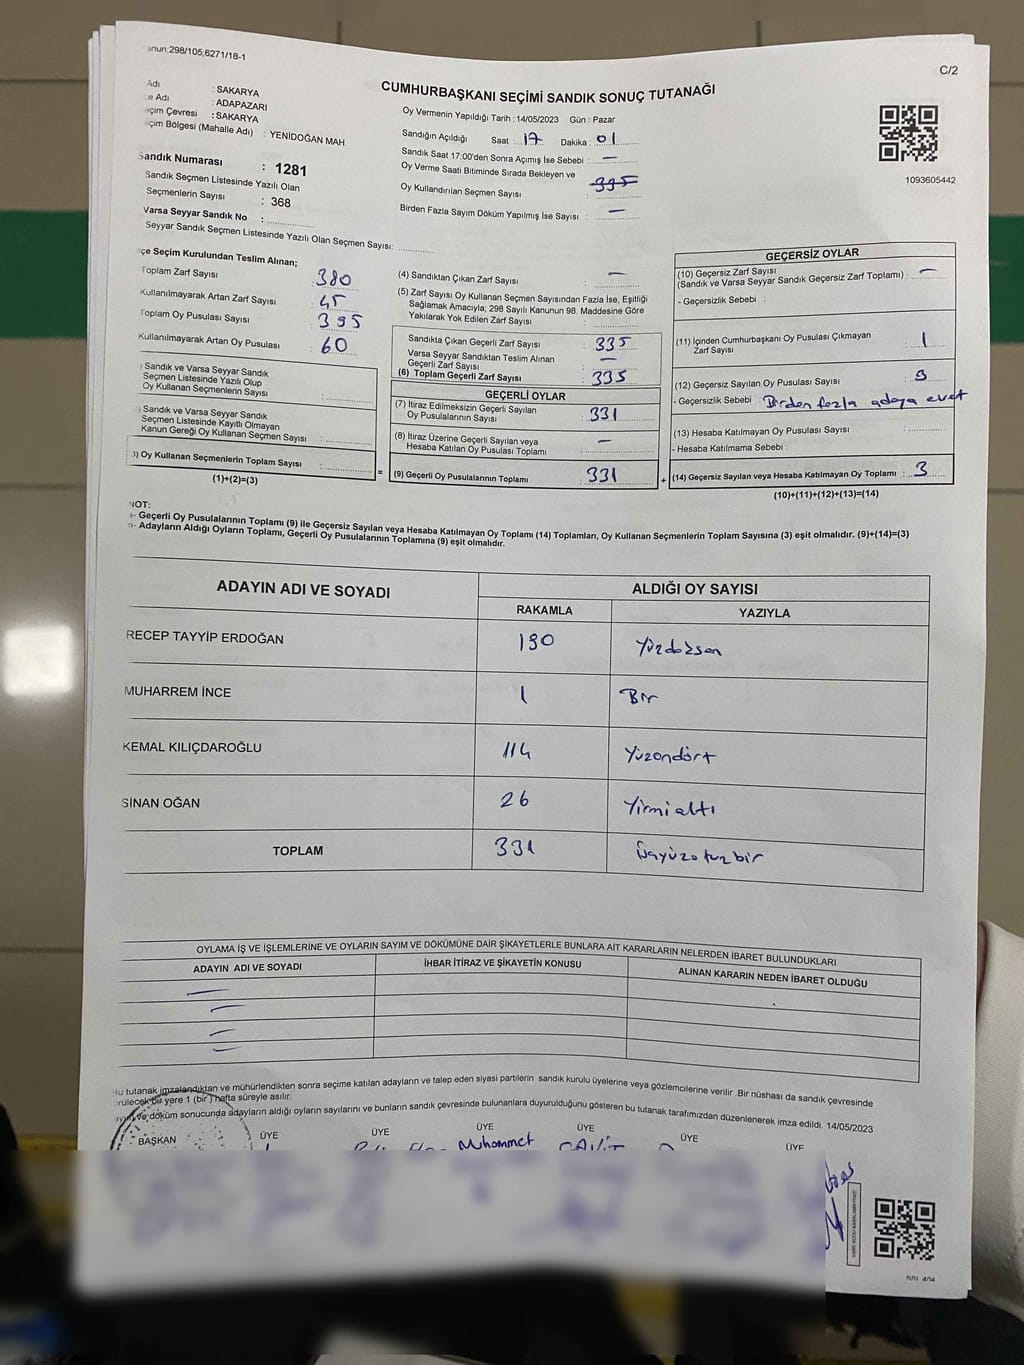 anun:298/105,6271/18-1
C/2
CUMHURBAŞKANI SEÇİMİ SANDIK SONUÇ TUTANAĞI
Adı : SAKARYA
e Adı : ADAPAZARI
çim Çevresi : SAKARYA
çim Bölgesi (Mahalle Adı) : YENİDOĞAN MAH
Sandık Numarası : 1281
Sandık Seçmen Listesinde Yazılı Olan
Seçmenlerin Sayısı : 368
Varsa Seyyar Sandık No :
Seyyar Sandık Seçmen Listesinde Yazılı Olan Seçmen Sayısı:
Oy Vermenin Yapıldığı Tarih :14/05/2023 Gün : Pazar
Sandığın Açıldığı Saat : 17 Dakika : 01
Sandık Saat 17:00'den Sonra Açımış İse Sebebi : —
Oy Verme Saati Bitiminde Sırada Bekleyen ve
Oy Kullandırılan Seçmen Sayısı
Birden Fazla Sayım Döküm Yapılmış İse Sayısı : —
1093605442
çe Seçim Kurulundan Teslim Alınan;
Toplam Zarf Sayısı : 380
Kullanılmayarak Artan Zarf Sayısı : 45
Toplam Oy Pusulası Sayısı : 395
Kullanılmayarak Artan Oy Pusulası : 60
) Sandık ve Varsa Seyyar Sandık
Seçmen Listesinde Yazılı Olup
Oy Kullanan Seçmenlerin Sayısı :
) Sandık ve Varsa Seyyar Sandık
Seçmen Listesinde Kayıtlı Olmayan
Kanun Gereği Oy Kullanan Seçmen Sayısı :
3) Oy Kullanan Seçmenlerin Toplam Sayısı :
(1)+(2)=(3)
(4) Sandıktan Çıkan Zarf Sayısı : —
(5) Zarf Sayısı Oy Kullanan Seçmen Sayısından Fazla İse, Eşitliği
Sağlamak Amacıyla; 298 Sayılı Kanunun 98. Maddesine Göre
Yakılarak Yok Edilen Zarf Sayısı :
Sandıkta Çıkan Geçerli Zarf Sayısı : 335
Varsa Seyyar Sandıktan Teslim Alınan
Geçerli Zarf Sayısı : —
(6) Toplam Geçerli Zarf Sayısı : 335
GEÇERLİ OYLAR
(7) İtiraz Edilmeksizin Geçerli Sayılan
Oy Pusulalarının Sayısı : 331
(8) İtiraz Üzerine Geçerli Sayılan veya
Hesaba Katılan Oy Pusulası Toplamı : —
(9) Geçerli Oy Pusulalarının Toplamı : 331
GEÇERSİZ OYLAR
(10) Geçersiz Zarf Sayısı
(Sandık ve Varsa Seyyar Sandık Geçersiz Zarf Toplamı) : —
- Geçersizlik Sebebi :
(11) İçinden Cumhurbaşkanı Oy Pusulası Çıkmayan
Zarf Sayısı : 1
(12) Geçersiz Sayılan Oy Pusulası Sayısı : 3
- Geçersizlik Sebebi : Birden fazla adaya evet
(13) Hesaba Katılmayan Oy Pusulası Sayısı :
- Hesaba Katılmama Sebebi :
(14) Geçersiz Sayılan veya Hesaba Katılmayan Oy Toplamı : 3
(10)+(11)+(12)+(13)=(14)
NOT:
a- Geçerli Oy Pusulalarının Toplamı (9) ile Geçersiz Sayılan veya Hesaba Katılmayan Oy Toplamı (14) Toplamları, Oy Kullanan Seçmenlerin Toplam Sayısına (3) eşit olmalıdır. (9)+(14)=(3)
b- Adayların Aldığı Oyların Toplamı, Geçerli Oy Pusulalarının Toplamına (9) eşit olmalıdır.
ADAYIN ADI VE SOYADI ALDIĞI OY SAYISI
RAKAMLA YAZIYLA
RECEP TAYYİP ERDOĞAN 190 Yüzdoksan
MUHARREM İNCE 1 Bir
KEMAL KILIÇDAROĞLU 114 Yüzondört
SİNAN OĞAN 26 Yirmialtı
TOPLAM 331 Üçyüzotuzbir
OYLAMA İŞ VE İŞLEMLERİNE VE OYLARIN SAYIM VE DÖKÜMÜNE DAİR ŞİKAYETLERLE BUNLARA AİT KARARLARIN NELERDEN İBARET BULUNDUKLARI
ADAYIN ADI VE SOYADI İHBAR İTİRAZ VE ŞİKAYETİN KONUSU ALINAN KARARIN NEDEN İBARET OLDUĞU
Bu tutanak imzalandıktan ve mühürlendikten sonra seçime katılan adayların ve talep eden siyasi partilerin sandık kurulu üyelerine veya gözlemcilerine verilir .Bir nüshası da sandık çevresinde
örülecek bir yere 1 (bir ) hafta süreyle asılır.
ayım ve döküm sonucunda adayların aldığı oyların sayılarını ve bunların sandık çevresinde bulunanlara duyurulduğunu gösteren bu tutanak tarafımızdan düzenlenerek imza edildi. 14/05/2023
BAŞKAN ÜYE ÜYE ÜYE ÜYE ÜYE ÜYE
Muhammet